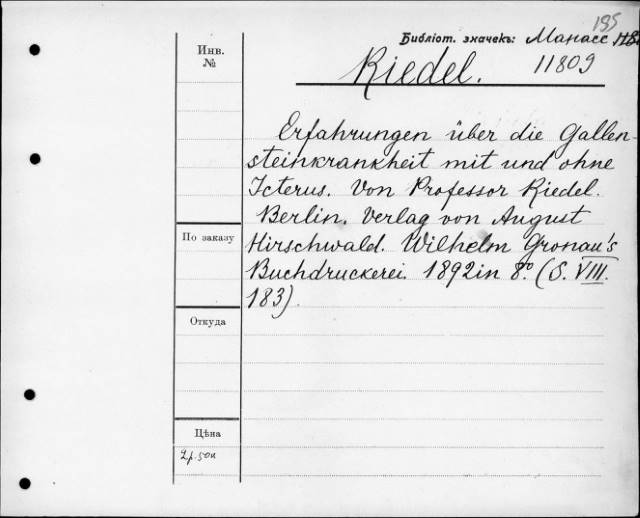 195
Библіот. значекъ: Манасс
11809
Инв.
№
Riedel.
Erfahrungen über die Gallen-
steinkrankheit mit und ohne
Icterus. Von Professor Riedel.
Berlin. Verlag von August
Hirschwald. Wilhelm Gronau's
Buchdruckerei 1892 in 8º. (S. VIII.
183).
По заказу
Откуда
Цѣна
2р. 50к